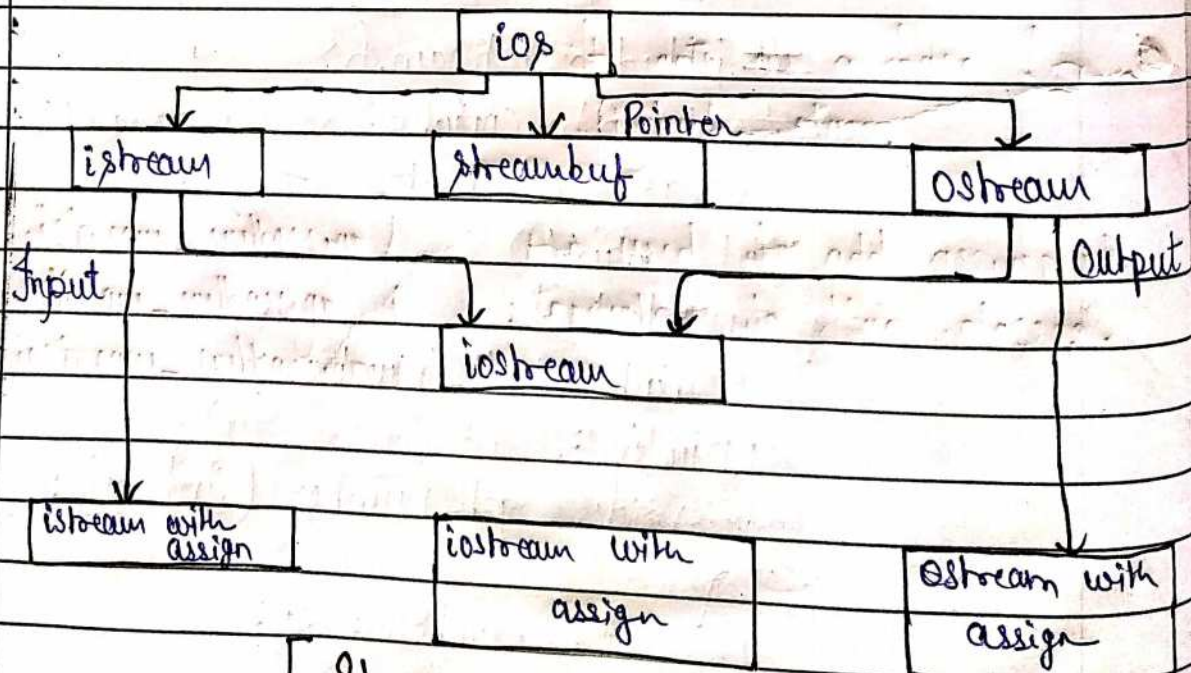 ios
Pointer
istream
streambuf
ostream
Input
Output
iostream
istream with
assign
iostream with
assign
Ostream with
assign